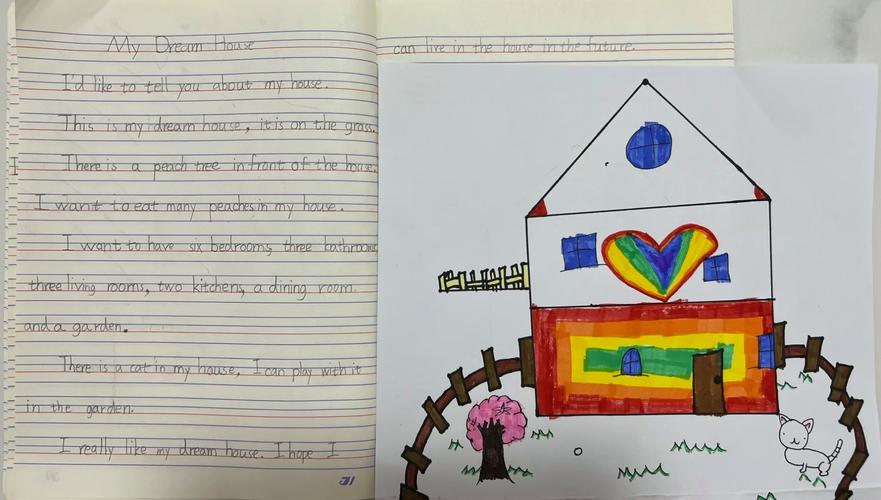 My Dream House
I'd like to tell you about my house.
This is my dream house, it is on the grass.
There is a peach tree in front of the house.
I want to eat many peaches in my house.
I want to have six bedrooms, three bathrooms,
three living rooms, two kitchens, a dining room
and a garden.
There is a cat in my house, I can play with it
in the garden.
I really like my dream house. I hope I
can live in the house in the future.